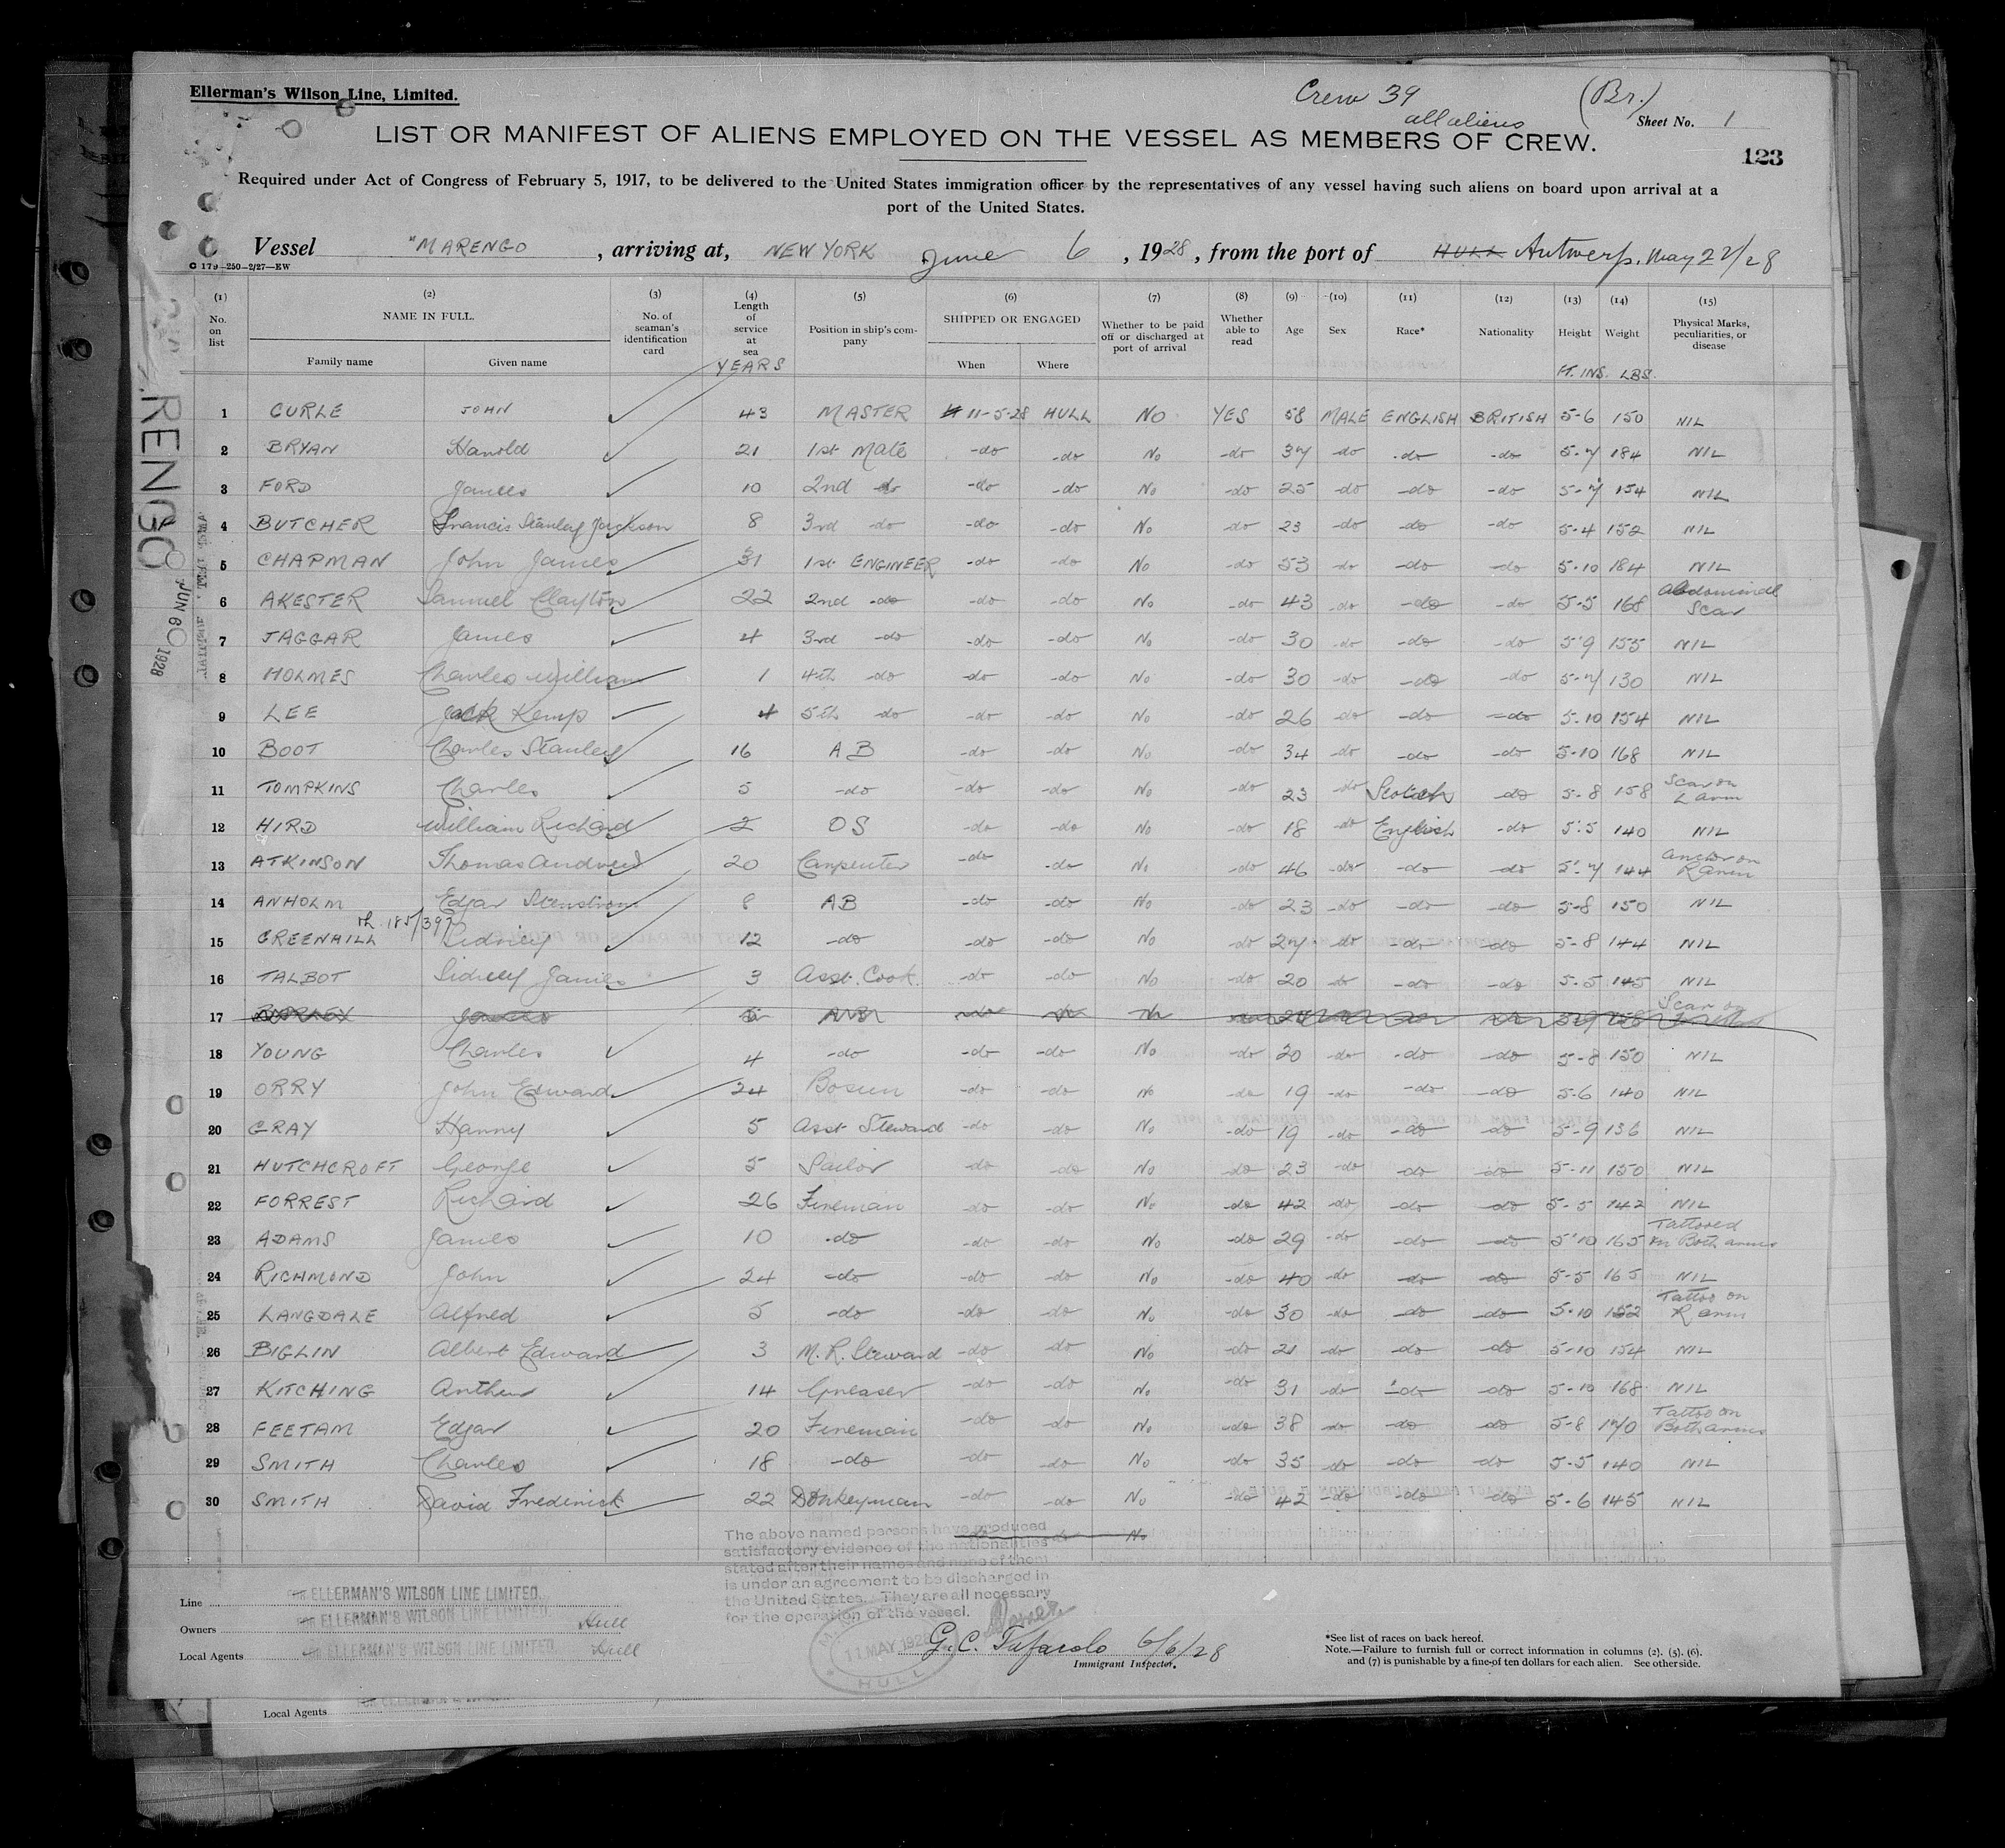 Ellerman's Wilson Line, Limited.
Crew 39 (Br.)
all aliens
Sheet No. 1
LIST OR MANIFEST OF ALIENS EMPLOYED ON THE VESSEL AS MEMBERS OF CREW.
123
Required under Act of Congress of February 5, 1917, to be delivered to the United States immigration officer by the representatives of any vessel having such aliens on board upon arrival at a
port of the United States.
Vessel "MARENGO , arriving at, NEW YORK June 6 , 1928, from the port of HULL Antwerp. May 22/28
C 179—250—2/27—EW
(1) No. on list (2) NAME IN FULL. Family name Given name (3) No. of seaman's identification card (4) Length of service at sea YEARS (5) Position in ship's company (6) SHIPPED OR ENGAGED When Where (7) Whether to be paid off or discharged at port of arrival (8) Whether able to read (9) Age (10) Sex (11) Race* (12) Nationality (13) Height FT. INS. (14) Weight LBS. (15) Physical Marks, peculiarities, or disease
1 CURLE JOHN 43 MASTER 11-5-28 HULL NO YES 58 MALE ENGLISH BRITISH 5-6 150 NIL
2 BRYAN Harold 21 1st Mate -do -do No -do 37 -do -do -do 5-7 184 NIL
3 FORD James 10 2nd do -do -do No -do 25 -do -do -do 5-7 154 NIL
4 BUTCHER Francis Stanley Jackson 8 3rd -do -do -do No -do 23 -do -do -do 5-4 152 NIL
5 CHAPMAN John James 31 1st ENGINEER -do -do No -do 53 -do -do -do 5-10 184 NIL
6 AKESTER Samuel Clayton 22 2nd -do -do -do No -do 43 -do -do -do 5-5 168 Abdominal Scar
7 JAGGAR James 4 3rd -do -do -do No -do 30 -do -do -do 5-9 155 NIL
8 HOLMES Charles William 1 4th -do -do -do No -do 30 -do -do -do 5-7 130 NIL
9 LEE Jack Kemp 4 5th do -do -do No -do 26 do -do -do 5-10 154 NIL
10 BOOT Charles Stanley 16 AB -do -do No -do 34 -do -do -do 5-10 168 NIL
11 TOMPKINS Charles 5 -do -do -do No -do 23 -do Scotch -do 5-8 158 Scar on L arm
12 HIRD William Richard 2 OS -do -do No -do 18 -do English -do 5-5 140 NIL
13 ATKINSON Thomas Andrew 20 Carpenter -do -do No -do 46 -do -do -do 5-7 144 Anchor on R arm
14 ANHOLM Edgar Stenstrom 8 AB -do -do No -do 23 -do -do -do 5-8 150 NIL
185/397
15 GREENHILL Sidney 12 -do -do -do No -do 27 -do -do -do 5-8 144 NIL
16 TALBOT Sidney James 3 Asst. Cook -do -do No -do 20 do -do -do 5-5 145 NIL
17 AB Scar on
18 YOUNG Charles 4 -do -do -do No -do 20 -do -do -do 5-8 150 NIL
19 ORRY John Edward 24 Bosun -do -do No -do 19 -do -do -do 5-6 140 NIL
20 GRAY Harry 5 Asst Steward -do -do No -do 19 -do -do do 5-9 136 NIL
21 HUTCHCROFT George 5 Sailor do do No do 23 -do -do -do 5-11 150 NIL
22 FORREST Richard 26 Fireman -do -do No -do 42 -do -do -do 5-5 142 NIL
23 ADAMS James 10 -do -do -do No -do 29 -do -do -do 5-10 165 Tattooed on Both arms
24 RICHMOND John 24 -do -do -do No -do 40 -do -do do 5-5 165 NIL
25 LANGDALE Alfred 5 -do -do -do No -do 30 -do -do -do 5-10 152 Tattoo on R arm
26 BIGLIN Albert Edward 3 M.R. Steward -do -do No -do 21 -do -do -do 5-10 154 NIL
27 KITCHING Arthur 14 Greaser -do -do No -do 31 -do -do -do 5-10 168 NIL
28 FEETAM Edgar 20 Fireman -do -do No -do 38 -do -do do 5-8 170 Tattoo on Both arms
29 SMITH Charles 18 -do -do -do No -do 35 -do -do do 5-5 140 NIL
30 SMITH David Frederick 22 Donkeyman -do -do No -do 42 -do -do -do 5-6 145 NIL
The above named persons have produced
satisfactory evidence of the nationalities
stated after their names and none of them
is under an agreement to be discharged in
the United States. They are all necessary
for the operation of the vessel.
Line FOR ELLERMAN'S WILSON LINE LIMITED.
Owners FOR ELLERMAN'S WILSON LINE LIMITED. Hull
Local Agents FOR ELLERMAN'S WILSON LINE LIMITED. Hull
11 MAY 1928
HULL
G. C. Tufarolo 6/6/28
Immigrant Inspector.
*See list of races on back hereof.
Note.—Failure to furnish full or correct information in columns (2), (5), (6),
and (7) is punishable by a fine of ten dollars for each alien. See other side.
Local Agents
RENGO
JUN 6 1928